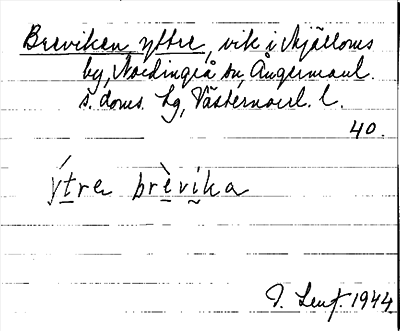 Breviken yttre, vik i Mjälloms
by, Nordingrå sn, Ångermanl.
s. doms. lg, Västernorrl. l.
40.
ýtre brèvika
1944